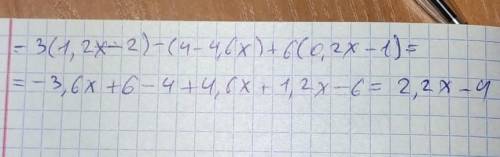 - 3(1,2x-2)-(4-4,6x)+6(0,2x-1)=
=-3,6x+6-4+4,6x+1,2x-6= 2,2x-4